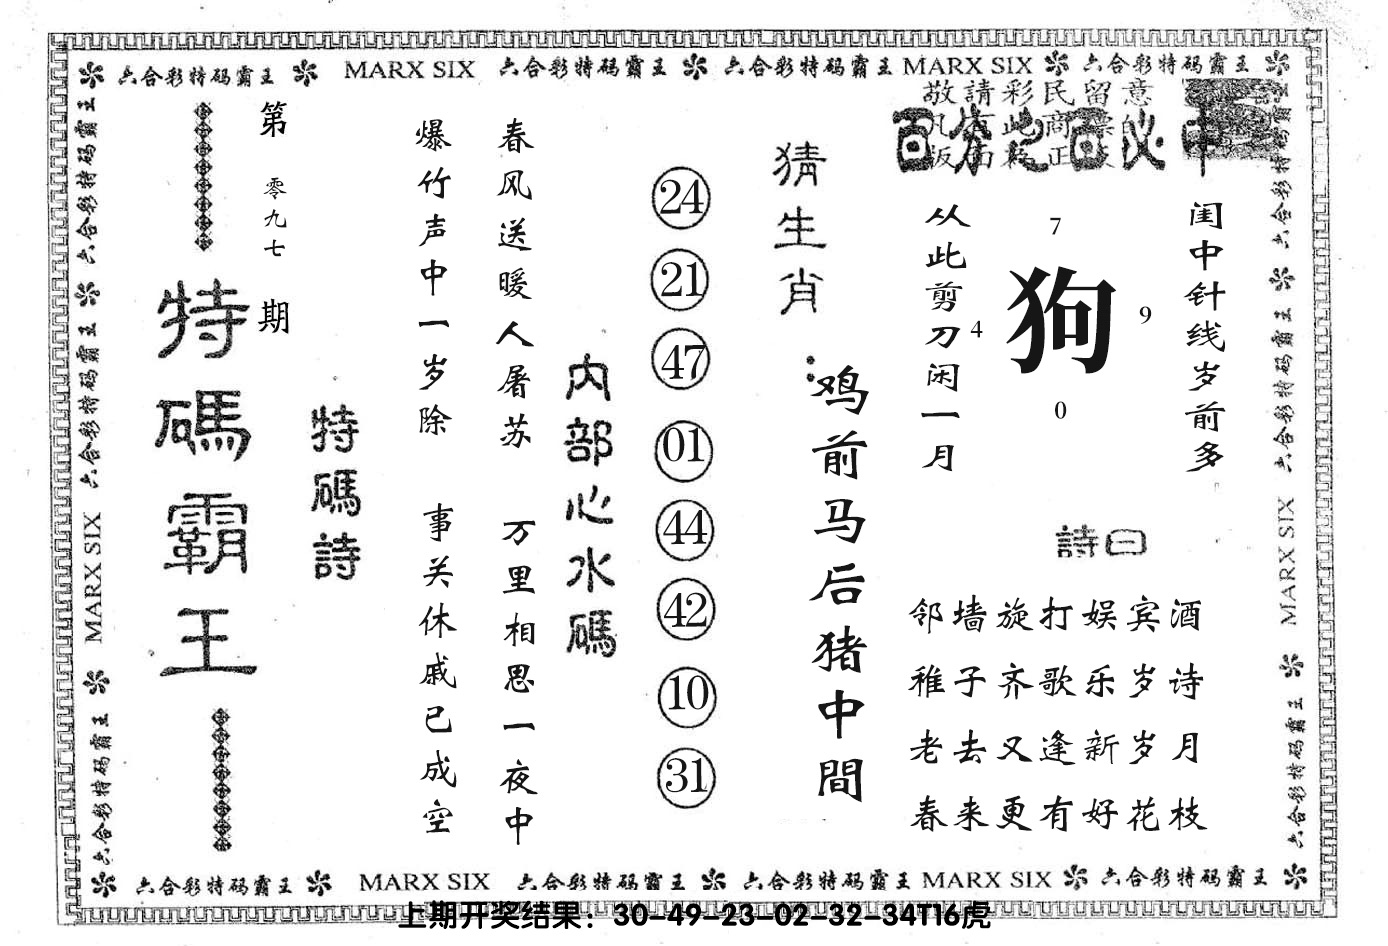 六合彩特码霸王 MARX SIX 六合彩特码霸王 六合彩特码霸王 MARX SIX 六合彩特码霸王
第零九七期
特碼霸王
特碼詩
爆竹声中一岁除 事关休戚已成空
春风送暖人屠苏 万里相思一夜中
内部心水碼
24
21
47
01
44
42
10
31
猜生肖:
鸡前马后猪中間
敬請彩民留意
百分之百必中
从此剪刀闲一月
7
4
狗
9
0
闺中针线岁前多
詩曰
邻墙旋打娱宾酒
稚子齐歌乐岁诗
老去又逢新岁月
春来更有好花枝
六合彩特码霸王 六合彩特码霸王 MARX SIX 六合彩特码霸王
六合彩特码霸王 六合彩特码霸王 MARX SIX 六合彩特码霸王
六合彩特码霸王 MARX SIX 六合彩特码霸王 六合彩特码霸王 MARX SIX 六合彩特码霸王
上期开奖结果：30-49-23-02-32-34T16虎